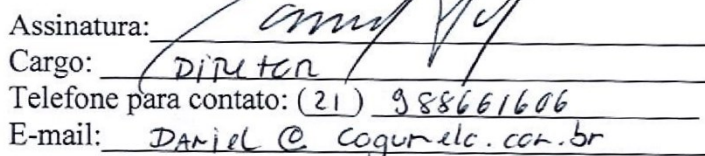 Assinatura:
Cargo: DIRETOR
Telefone para contato: (21) 988661606
E-mail: DANIEL @ cogumelo.com.br